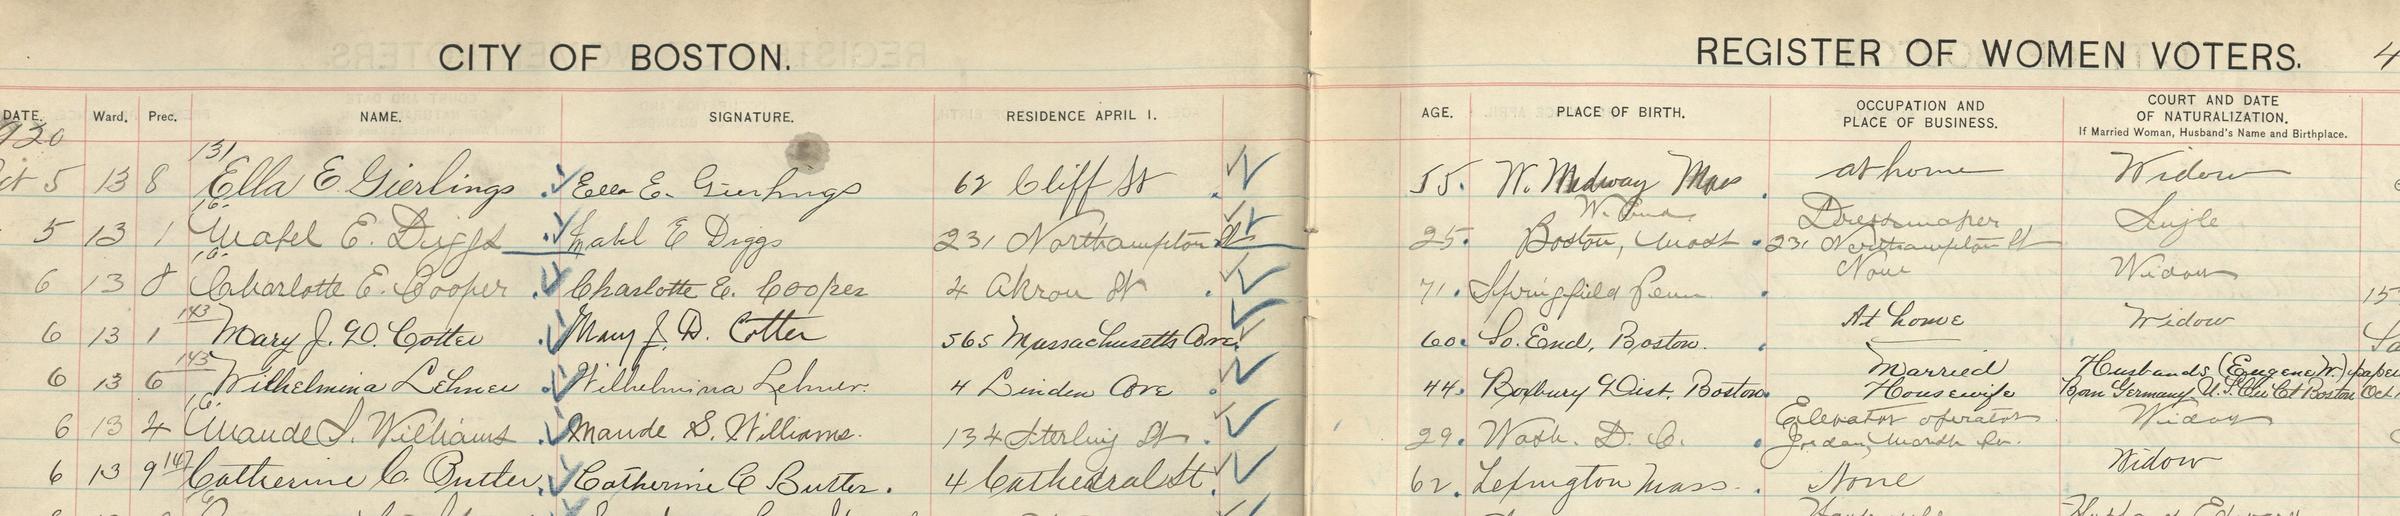 CITY OF BOSTON. REGISTER OF WOMEN VOTERS. 4
DATE. Ward. Prec. NAME. SIGNATURE. RESIDENCE APRIL 1. AGE. PLACE OF BIRTH. OCCUPATION AND PLACE OF BUSINESS. COURT AND DATE OF NATURALIZATION. If Married Woman, Husband's Name and Birthplace.
920
131
5 13 8 Ella E. Gierlings Ella E. Gierlings 62 Cliff St 55. W. Medway Mass at home Widow
16.
5 13 1 Mabel E. Diggs Mabel E Diggs 231 Northampton St 25. W. End Boston, Mass Dressmaker 231 Northampton St Single
16.
6 13 8 Charlotte E. Cooper Charlotte E. Cooper 4 Akron St 71. Springfield Penn None Widow 15
143
6 13 1 Mary J. D. Cotter Mary J. D. Cotter 565 Massachusetts Ave. 60. So. End, Boston. At home Widow
143
6 13 6 Wilhelmina Lehner Wilhelmina Lehner. 4 Linden Ave 44. Roxbury Dist. Boston. Married Housewife Husbands (Eugene W.) papers Born Germany U.S. Cir Ct Boston Oct.
16.
6 13 4 Maude S. Williams Maude S. Williams. 134 Sterling St 29. Wash. D. C. Elevator operator Jordan, Marsh Co. Widow
147
6 13 9 Catherine C. Butler Catherine C Butler. 4 Cathedral St 62. Lexington Mass. None Widow